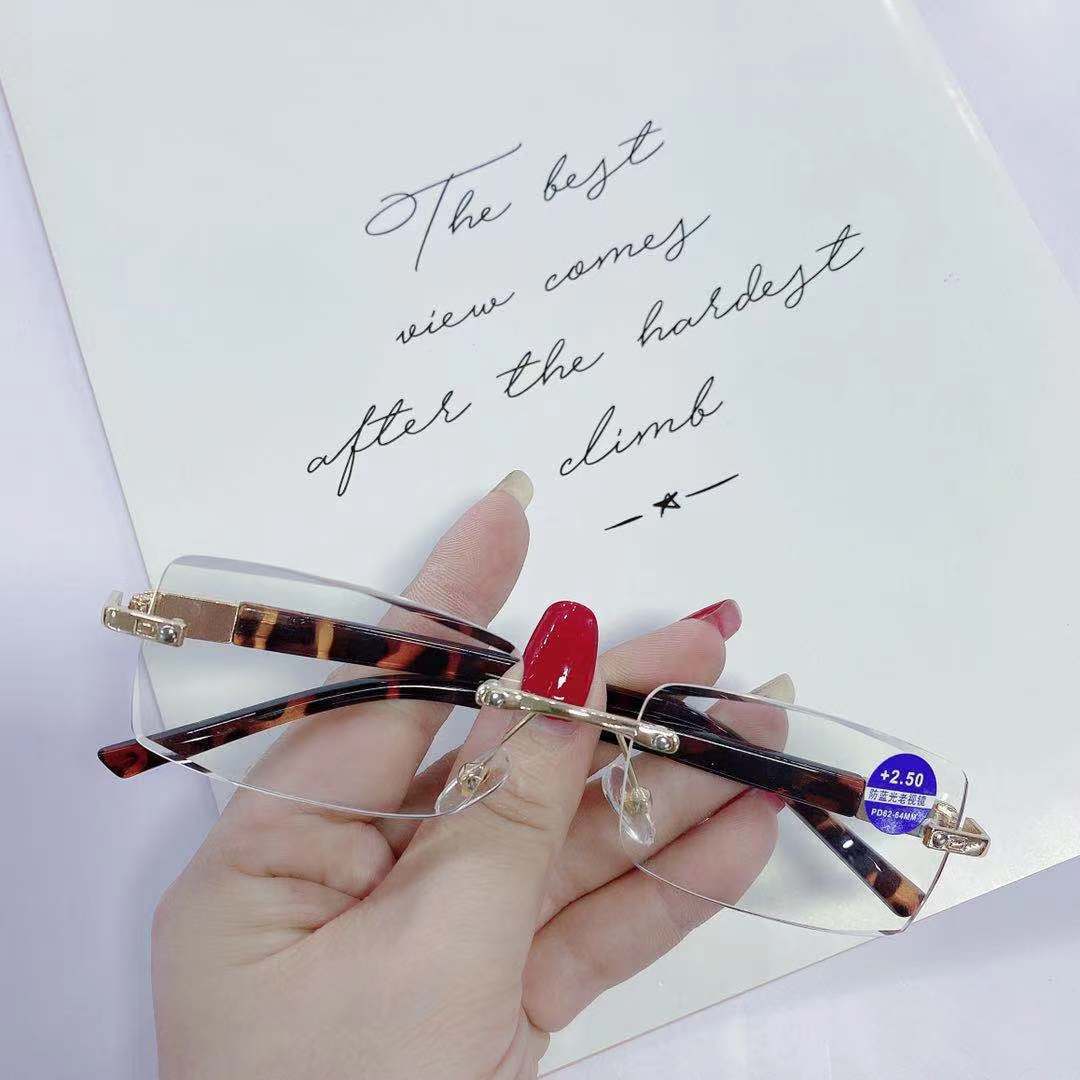 The best
view comes
after the hardest
climb
+2.50
防蓝光老视镜
PD62-64MM